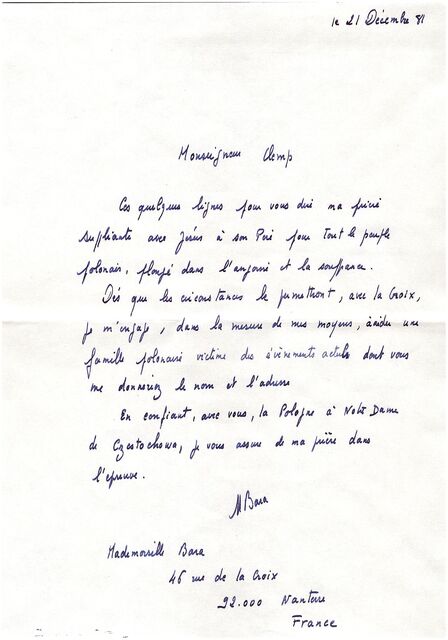 le 21 Décembre 81
Monseigneur Glemp
Ces quelques lignes pour vous dire ma prière
suppliante avec Jésus à son Père pour tout le peuple
polonais, plongé dans l'angoisse et la souffrance.
Dès que les circonstances le permettront, avec la Croix,
je m'engage, dans la mesure de mes moyens, à aider une
famille polonaise victime des évènements actuels dont vous
me donneriez le nom et l'adresse
En confiant, avec vous, la Pologne à Notre Dame
de Czestochowa, je vous assure de ma prière dans
l'épreuve.
M Bara
Mademoiselle Bara
46 rue de la Croix
92.000 Nanterre
France